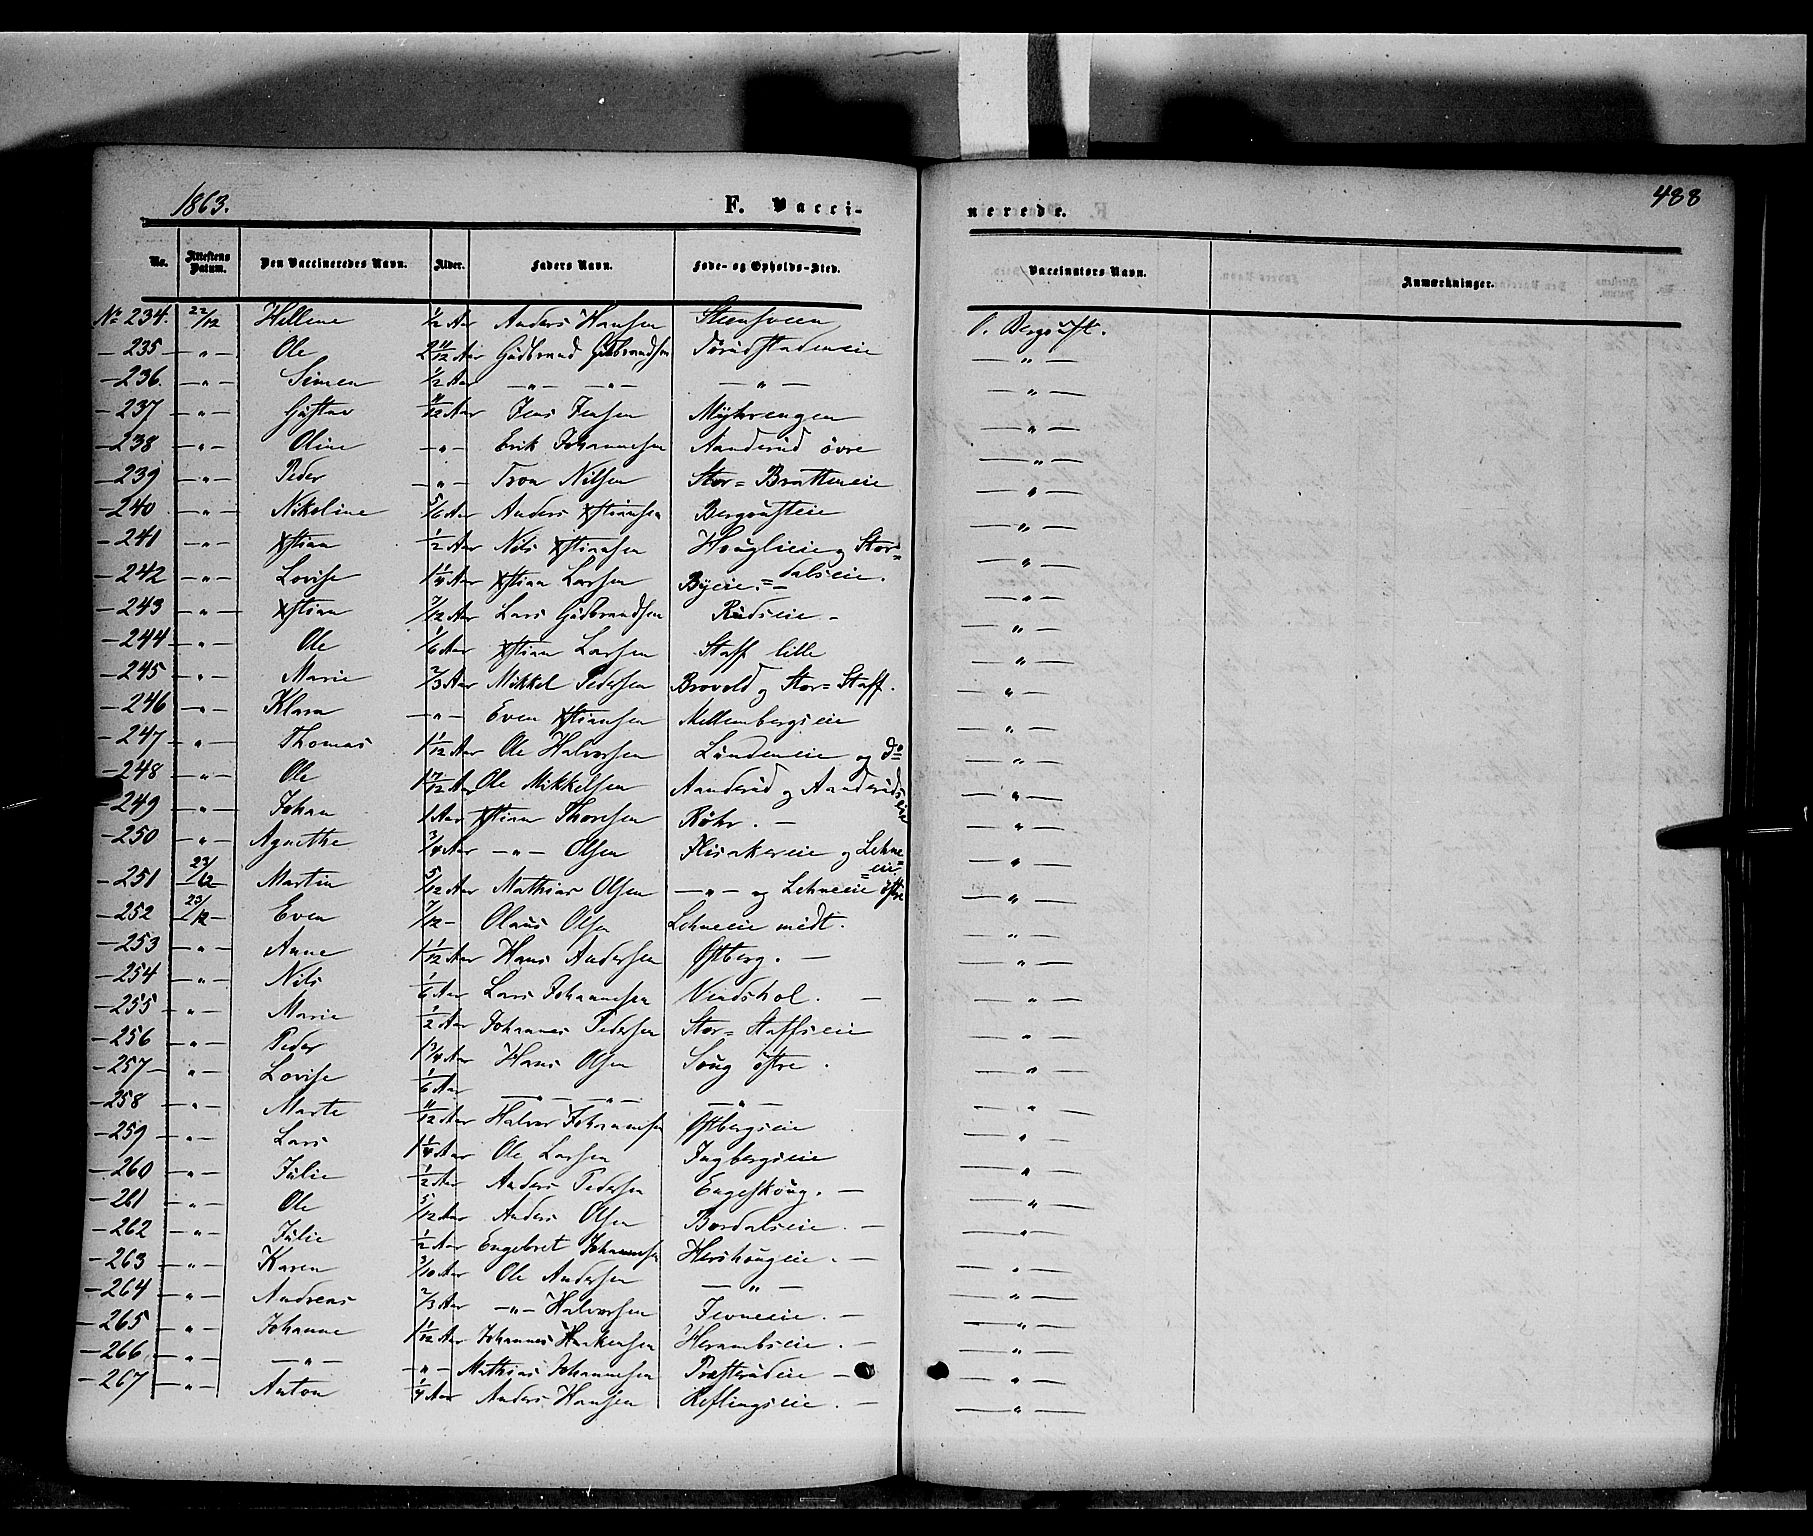 1863. F. Vacci- nerede. 488
No. Attestens Datum. Den Vaccineredes Navn. Alder. Faders Navn. Føde- og Opholds-Sted. Vaccinators Navn. Anmærkninger.
No 234. 22/12 Hellene 1/2 Aar Anders Hansen Steensveen O. Bergsust.
- 235 - " - Ole 2 11/12 Aar Gudbrand Gudbrandsen - " -
- 236 - " - Simen 1/2 Aar - " - - " - - " - - " -
- 237 - " - Gustav 11/12 Aar Jens Jensen Myhrengen - " -
- 238 - " - Oline - " - Erik Johannesen Aanderud övre - " -
- 239 - " - Peder - " - Tron Nilsen Stor= Bratteneie - " -
- 240 - " - Nikoline 5/6 Aar Anders Xstiansen Bergsusteie - " -
- 241 - " - Xstian 1/2 Aar Nils Xstiansen Houglieie og Stor= - " -
dalseie.
- 242 - " - Lovise 1 1/4 Aar Xstian Larsen Byeie. - " -
- 243 - " - Xstian 7/12 Aar Lars Gudbrandsen Rudseie - - " -
- 244 - " - Ole 1/6 Aar Xstian Larsen Staff lille - " -
- 245 - " - Marie 2/3 Aar Mikkel Pedersen Brovold og Stor= Staff. - " -
- 246 - " - Klara - " - Even Xstiansen Mellembergseie - " -
- 247 - " - Thomas 1 1/12 Aar Ole Halvorsen Lundeneie og Do - " -
- 248 - " - Ole 1 7/12 Aar Ole Mikkelsen Aanderud og Aanderuds eie - " -
- 249 - " - Johan 1 Aar Xstian Thoresen Röhr. - - " -
- 250 - " - Agnethe 3/4 Aar - " - Olsen Flisakereie og Lehne= eie - " -
- 251 23/12 Martin 5/12 Aar Mathias Olsen - " - og Lehneeie östre - " -
- 252 23/12 Even 7/12 - Olaus Olsen Lehneeie midt. - " -
- 253 - " - Anne 1 1/12 Aar Hans Andersen Östberg. - - " -
- 254 - " - Nils 1/6 Aar Lars Johannesen Vindshol. - - " -
- 255 - " - Marie 1/2 Aar Johannes Pedersen Stor= Staffseie - " -
- 256 - " - Peder 1 3/4 Aar Hans Olsen Soug östre. - " -
- 257 - " - Lovise 1/6 Aar - " - - " - - " - - " -
- 258 - " - Marte 11/12 Aar Halvor Johannesen Östbergseie - " -
- 259 - " - Lars 1 1/4 Aar Ole Larsen Ingbergseie - " -
- 260 - " - Julie 1/2 Aar Anders Pedersen Engeskoug. - - " -
- 261 - " - Ole 5/12 Aar Anders Olsen Bordalseie. - - " -
- 262 - " - Julie 1/2 Aar Engebret Johannesen Hershougeie. - - " -
- 263 - " - Karen 3/10 Aar Ole Andersen - " - - " -
- 264 - " - Andreas 2/3 Aar - " - Halvorsen Jevneeie. - - " -
- 265 - " - Johanne 1 1/12 Aar Johannes Haakensen Herambseie. - - " -
- 266 - " - - " - - " - Mathias Johannesen Præsterudeie - - " -
- 267 - " - Anton 1/4 Aar Anders Hansen Reflingseie. - - " -